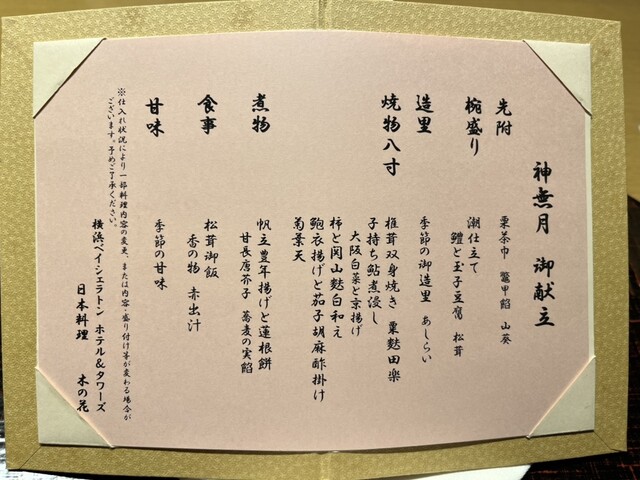 神無月 御献立
先附
栗茶巾 鼈甲餡 山葵
椀盛り
潮仕立て
鱧と玉子豆腐 松茸
造里
季節の御造里 あしらい
焼物八寸
椎茸双身焼き 粟麩田楽
子持ち鮎煮浸し
大阪白菜と京揚げ
柿と岡山麩白和え
鮑衣揚げと茄子胡麻酢掛け
菊景天
煮物
帆立豊年揚げと蓮根餅
甘長唐芥子 蕎麦の実餡
食事
松茸御飯
香の物 赤出汁
甘味
季節の甘味
※仕入れ状況により一部料理内容の変更、または内容・盛り付け等が変わる場合が
ございます。予めご了承ください。
横浜ベイシェラトン ホテル&タワーズ
日本料理 木の花